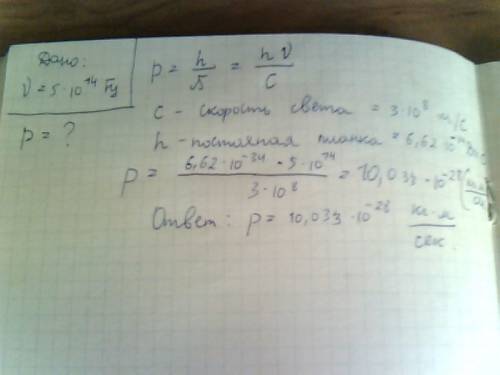 Дано:
ν = 5·10^14 Гц
p = ?
p = h/λ = hν/c
c - скорость света = 3·10^8 м/с
h - постояная планка = 6,62·10
p = (6,62·10^-34 · 5·10^14)/(3·10^8) = 10,033·10^-28
Ответ: p = 10,033·10^-28 кг·м/сек.